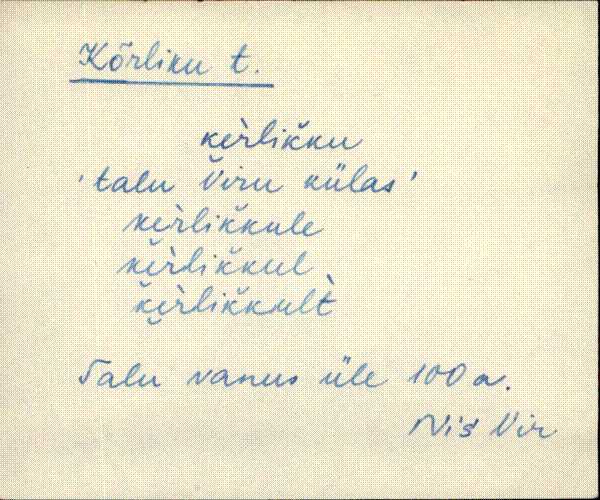 Kõrliku t.
ke̮rlikku
'talu Viru külas'
ke̮rlikkule
ke̮rlikkul
ke̮rlikkult
Talu vanus üle 100 a.
Nis Vir